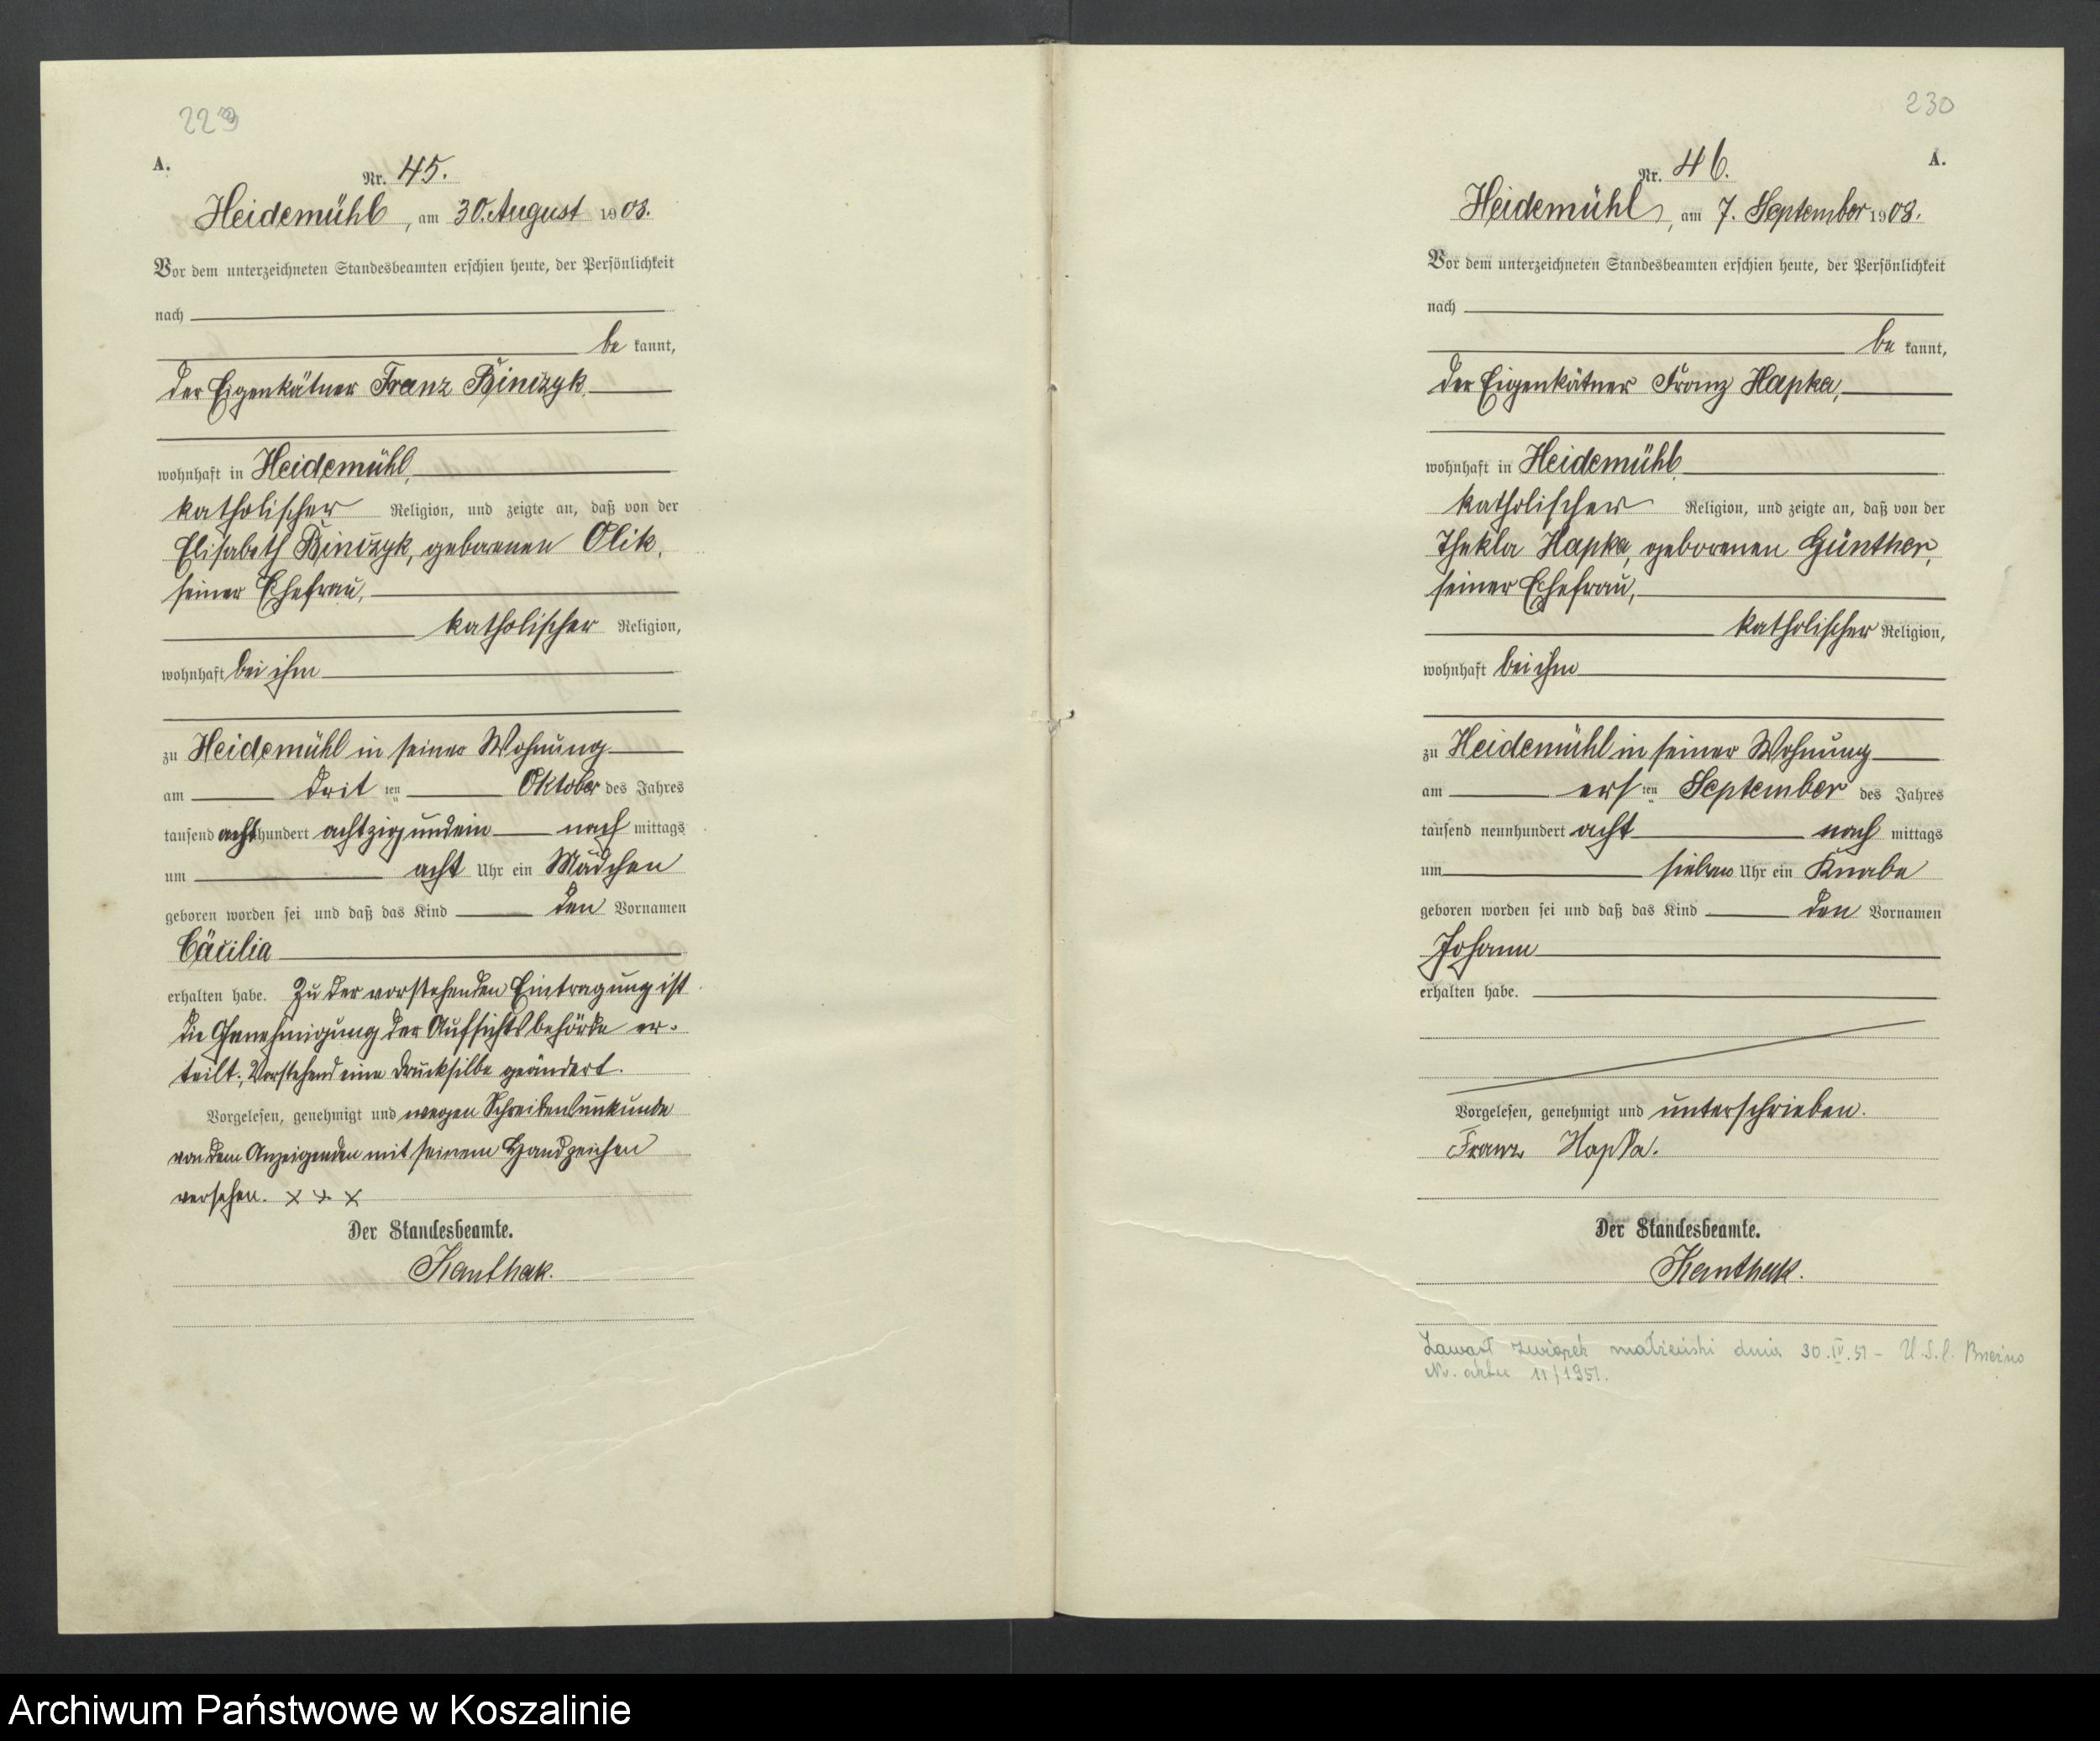 229
A.
Nr. 45.
Heidemühl, am 30. August 1908.
Vor dem unterzeichneten Standesbeamten erschien heute, der Persönlichkeit
nach
be kannt,
der Eigenkätner Franz Binczyk
wohnhaft in Heidemühl,
katholischer Religion, und zeigte an, daß von der
Elisabeth Binczyk, geborenen Olik,
seiner Ehefrau,
katholischer Religion,
wohnhaft bei ihm
zu Heidemühl in seiner Wohnung
am dritten Oktober des Jahres
tausend achthundert achtzig und ein nach mittags
um acht Uhr ein Mädchen
geboren worden sei und daß das Kind den Vornamen
Cäcilia
erhalten habe. Zu der vorstehenden Eintragung ist
die Genehmigung der Aufsichtsbehörde er-
teilt. Vorstehend eine Drucksilbe geändert.
Vorgelesen, genehmigt und wegen Schreibensunkunde
von dem Anzeigenden mit seinem Handzeichen
versehen. x x x
Der Standesbeamte.
Kanthak.
230
A.
Nr. 46.
Heidemühl, am 7. September 1908.
Vor dem unterzeichneten Standesbeamten erschien heute, der Persönlichkeit
nach
be kannt,
der Eigenkätner Franz Hapka,
wohnhaft in Heidemühl
katholischer Religion, und zeigte an, daß von der
Thekla Hapka, geborenen Günther,
seiner Ehefrau,
katholischer Religion,
wohnhaft bei ihm
zu Heidemühl in seiner Wohnung
am ersten September des Jahres
tausend neunhundert acht nach mittags
um sieben Uhr ein Knabe
geboren worden sei und daß das Kind den Vornamen
Johann
erhalten habe.
Vorgelesen, genehmigt und unterschrieben.
Franz Hapka.
Der Standesbeamte.
Kanthak.
Zawarł związek małżeński dnia 30.IV.51 - U.S.C.
Nr. aktu 11/1951.
Archiwum Państwowe w Koszalinie